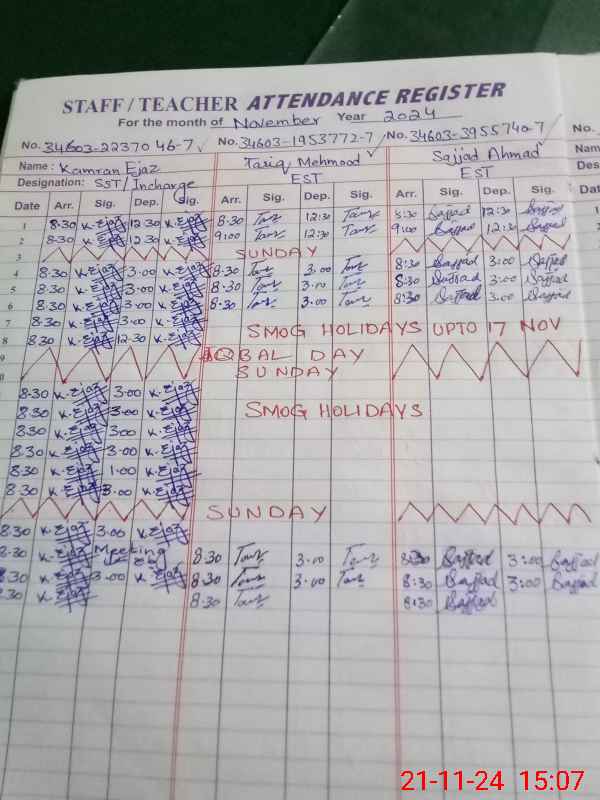 STAFF / TEACHER ATTENDANCE REGISTER
For the month of November Year 2024
No. 34603-2237046-7 No. 34603-1953772-7 No. 34603-3955740-7 No.
Name : Kamran Ejaz Tariq Mehmood Sajjad Ahmad Nam
Designation: SST/Incharge EST EST Des
Date Arr. Sig. Dep. Sig. Arr. Sig. Dep. Sig. Arr. Sig. Dep. Sig. Dat
1 8.30 K.Ejaz 12.30 K.Ejaz 8.30 Tar 12:30 Tar 8:30 Sajjad 12:30 Sajjad
2 8.30 K.Ejaz 12.30 K.Ejaz 9:00 Tar 12:30 Tar 9:00 Sajjad 12:30 Sajjad
3 SUNDAY
4 8.30 K.Ejaz 3.00 K.Ejaz 8.30 Tar 3.00 Tar 8:30 Sajjad 3:00 Sajjad
5 8.30 K.Ejaz 3.00 K.Ejaz 8.30 Tar 3.00 Tar 8:30 Sajjad 3:00 Sajjad
6 8.30 K.Ejaz 3.00 K.Ejaz 8.30 Tar 3.00 Tar 8:30 Sajjad 3.00 Sajjad
7 8.30 K.Ejaz 3.00 K.Ejaz SMOG HOLIDAYS UPTO 17 NOV
8 8.30 K.Ejaz 12.30 K.Ejaz
9 IQBAL DAY
0 SUNDAY
8.30 K.Ejaz 3.00 K.Ejaz
8.30 K.Ejaz 3.00 K.Ejaz SMOG HOLIDAYS
8.30 K.Ejaz 3.00 K.Ejaz
8.30 K.Ejaz 3.00 K.Ejaz
8.30 K.Ejaz 1.00 K.Ejaz
8.30 K.Ejaz 3.00 K.Ejaz
SUNDAY
8.30 K.Ejaz 3.00 K.Ejaz
8.30 K.Ejaz Meeting 8.30 Tar 3.00 Tar 8:30 Sajjad 3:00 Sajjad
8.30 K.Ejaz 3.00 K.Ejaz 8.30 Tar 3.00 Tar 8:30 Sajjad 3:00 Sajjad
8.30 K.Ejaz 8.30 Tar 8:30 Sajjad
21-11-24 15:07